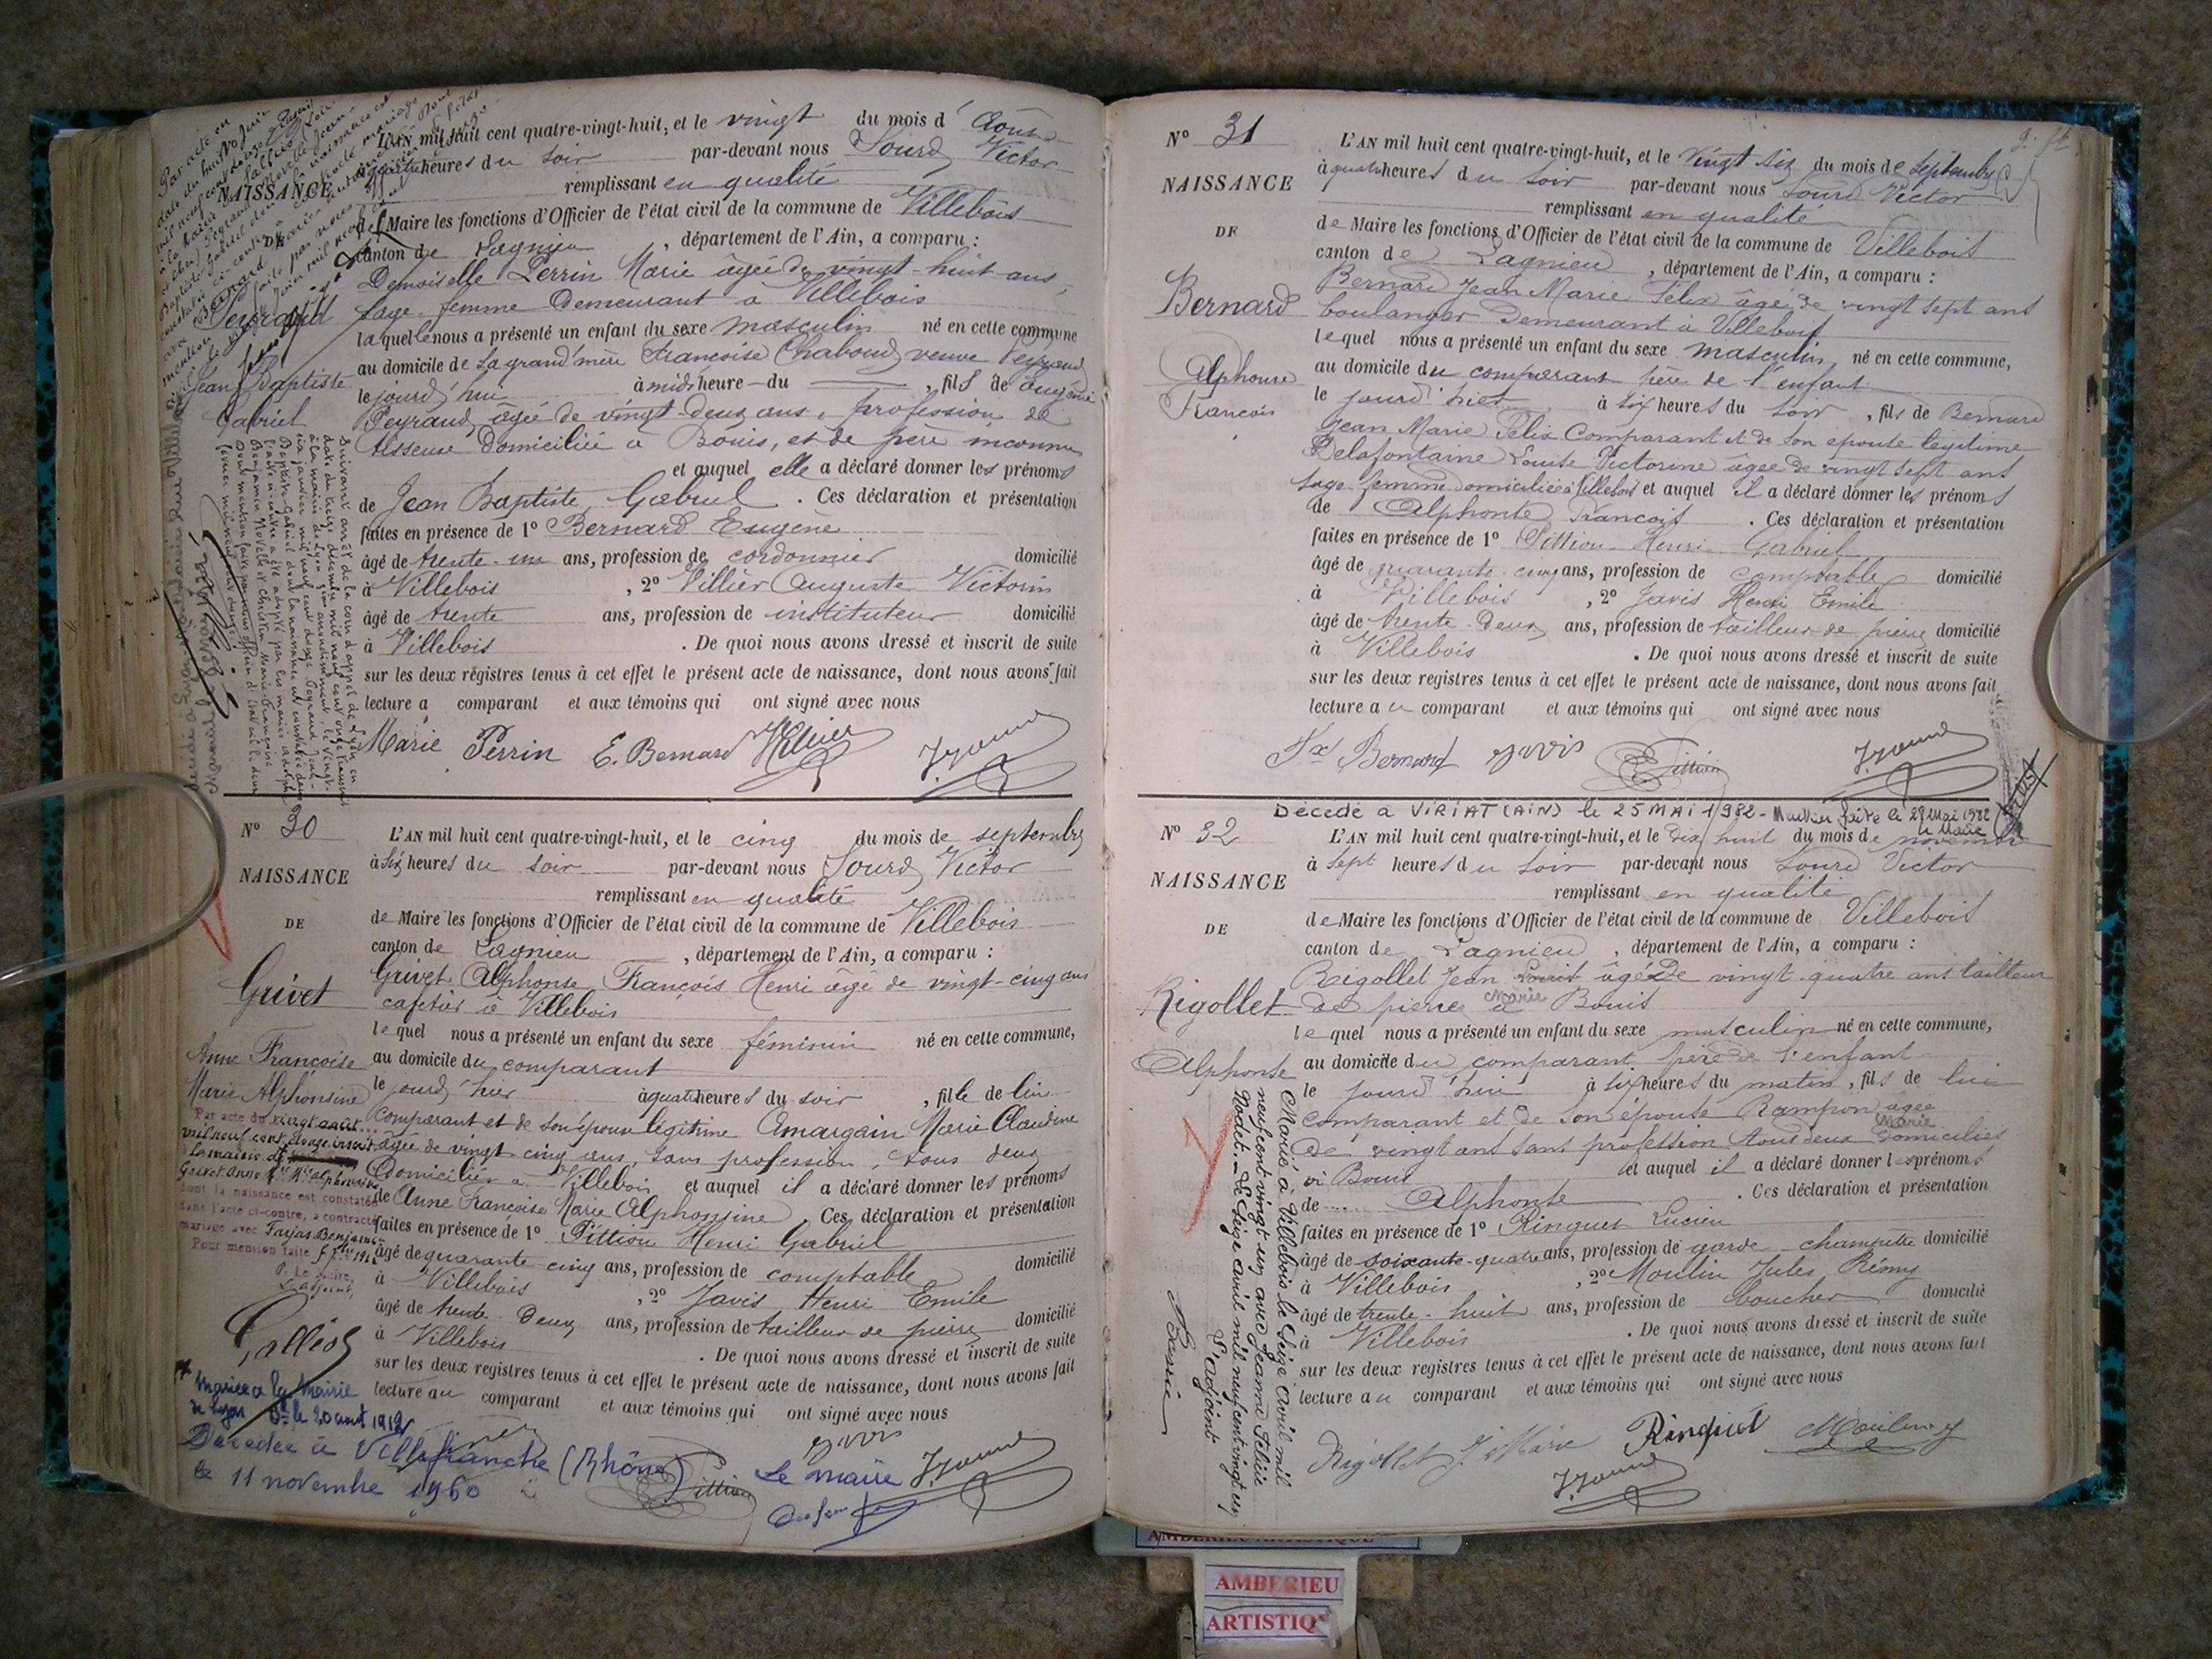 NAISSANCE
DE
Peyraud
Jean Baptiste
Gabriel
L'AN mil huit cent quatre-vingt-huit, et le vingt du mois d'Août
à quatre heures du soir par-devant nous Sourd Victor
remplissant en qualité
de Maire les fonctions d'Officier de l'état civil de la commune de Villebois
canton de Lagnieu, département de l'Ain, a comparu :
Demoiselle Perrin Marie âgée de vingt-huit ans,
sage-femme demeurant à Villebois
laquelle nous a présenté un enfant du sexe masculin né en cette commune
au domicile de sa grand'mère Françoise Chaboud veuve Peyraud
le jourd'hui à midi heure du , fils de Eugénie
Peyraud, âgée de vingt-deux ans, profession de
tisseuse domiciliée à Bouis, et de père inconnu
et auquel elle a déclaré donner les prénoms
de Jean Baptiste Gabriel. Ces déclaration et présentation
faites en présence de 1º Bernard Eugène
âgé de trente-un ans, profession de cordonnier domicilié
à Villebois, 2º Villier Auguste Victorin
âgé de trente ans, profession de instituteur domicilié
à Villebois. De quoi nous avons dressé et inscrit de suite
sur les deux registres tenus à cet effet le présent acte de naissance, dont nous avons fait
lecture a comparant et aux témoins qui ont signé avec nous
Marie Perrin E. Bernard Villier
Suivant arrêt de la cour d'appel de Lyon en
date du treize décembre mil neuf cent onze transcrit
à la mairie de Lyon
Nº 30
NAISSANCE
DE
Grivet
Anne Françoise
Marie Alphonsine
L'AN mil huit cent quatre-vingt-huit, et le cinq du mois de septembre
à six heures du soir par-devant nous Sourd Victor
remplissant en qualité
de Maire les fonctions d'Officier de l'état civil de la commune de Villebois
canton de Lagnieu, département de l'Ain, a comparu :
Grivet Alphonse François Henri âgé de vingt-cinq ans
cafetier à Villebois
lequel nous a présenté un enfant du sexe féminin né en cette commune,
au domicile du comparant
le jourd'hier à quatre heures du soir, fille de lui
comparant et de son épouse légitime Amargain Marie Claudine
âgée de vingt cinq ans, sans profession, tous deux
domiciliés à Villebois et auquel il a déclaré donner les prénoms
de Anne Françoise Marie Alphonsine Ces déclaration et présentation
faites en présence de 1º Pittion Henri Gabriel
âgé de quarante cinq ans, profession de comptable domicilié
à Villebois, 2º Javis Henri Emile
âgé de trente deux ans, profession de tailleur de pierre domicilié
à Villebois. De quoi nous avons dressé et inscrit de suite
sur les deux registres tenus à cet effet le présent acte de naissance, dont nous avons fait
lecture au comparant et aux témoins qui ont signé avec nous
Par acte du vingt août
mil neuf cent douze inscrit à
la mairie de
Grivet Anne
dont la naissance est constatée
dans l'acte ci-contre, a contracté
mariage avec Fayas Benjamin
Pour mention faite
L'adjoint,
Mariée à la Mairie
de Lyon le 20 août 1912
Décédée à Villefranche (Rhône)
le 11 novembre 1960
Javis
Pittion
Le maire
Nº 31
NAISSANCE
DE
Bernard
Alphonse
François
L'AN mil huit cent quatre-vingt-huit, et le Vingt six du mois de septembre
à quatre heures du soir par-devant nous Sourd Victor
remplissant en qualité
de Maire les fonctions d'Officier de l'état civil de la commune de Villebois
canton de Lagnieu, département de l'Ain, a comparu :
Bernard Jean Marie Félix âgé de vingt sept ans
boulanger demeurant à Villebois
lequel nous a présenté un enfant du sexe masculin, né en cette commune,
au domicile du comparant père de l'enfant
le jourd'hier à six heures du soir, fils de Bernard
Jean Marie Félix comparant et de son épouse légitime
Delafontaine Louise Victorine âgée de vingt sept ans
sage-femme domiciliée à Villebois et auquel il a déclaré donner les prénoms
de Alphonse François. Ces déclaration et présentation
faites en présence de 1º Pittion Henri Gabriel
âgé de quarante-cinq ans, profession de comptable domicilié
à Villebois, 2º Javis Henri Emile
âgé de trente-deux ans, profession de tailleur de pierre domicilié
à Villebois. De quoi nous avons dressé et inscrit de suite
sur les deux registres tenus à cet effet le présent acte de naissance, dont nous avons fait
lecture au comparant et aux témoins qui ont signé avec nous
Fx Bernard Javis Pittion
Décédé à VIRIAT (AIN) le 25 MAI 1982 - Mention faite le 28 mai 1982
le Maire
Nº 32
NAISSANCE
DE
Rigollet
Alphonse
L'AN mil huit cent quatre-vingt-huit, et le Dix huit du mois de novembre
à sept heures du soir par-devant nous Sourd Victor
remplissant en qualité
de Maire les fonctions d'Officier de l'état civil de la commune de Villebois
canton de Lagnieu, département de l'Ain, a comparu :
Rigollet Jean Louis âgé de vingt-quatre ans tailleur
Marie
de pierres à Bouis
lequel nous a présenté un enfant du sexe masculin né en cette commune,
au domicile du comparant père de l'enfant
le jourd'hui à six heures du matin, fils de lui
comparant et de son épouse Rampon âgée
Marie
de vingt ans sans profession tous deux domiciliés
à Bouis et auquel il a déclaré donner les prénoms
de Alphonse. Ces déclaration et présentation
faites en présence de 1º Ringuet Lucien
âgé de soixante-quatre ans, profession de garde-champêtre domicilié
à Villebois, 2º Moulin Jules Rémy
âgé de trente-huit ans, profession de boucher domicilié
à Villebois. De quoi nous avons dressé et inscrit de suite
sur les deux registres tenus à cet effet le présent acte de naissance, dont nous avons fait
lecture au comparant et aux témoins qui ont signé avec nous
Rigollet J. Marie Ringuet Moulin
Marié à Villebois le seize avril mil
neuf cent vingt un avec Jeanne Félicie
Nodet. Le seize avril mil neuf cent vingt un
L'adjoint
AMBERIEU ARTISTIQUE
AMBERIEU
ARTISTIQ